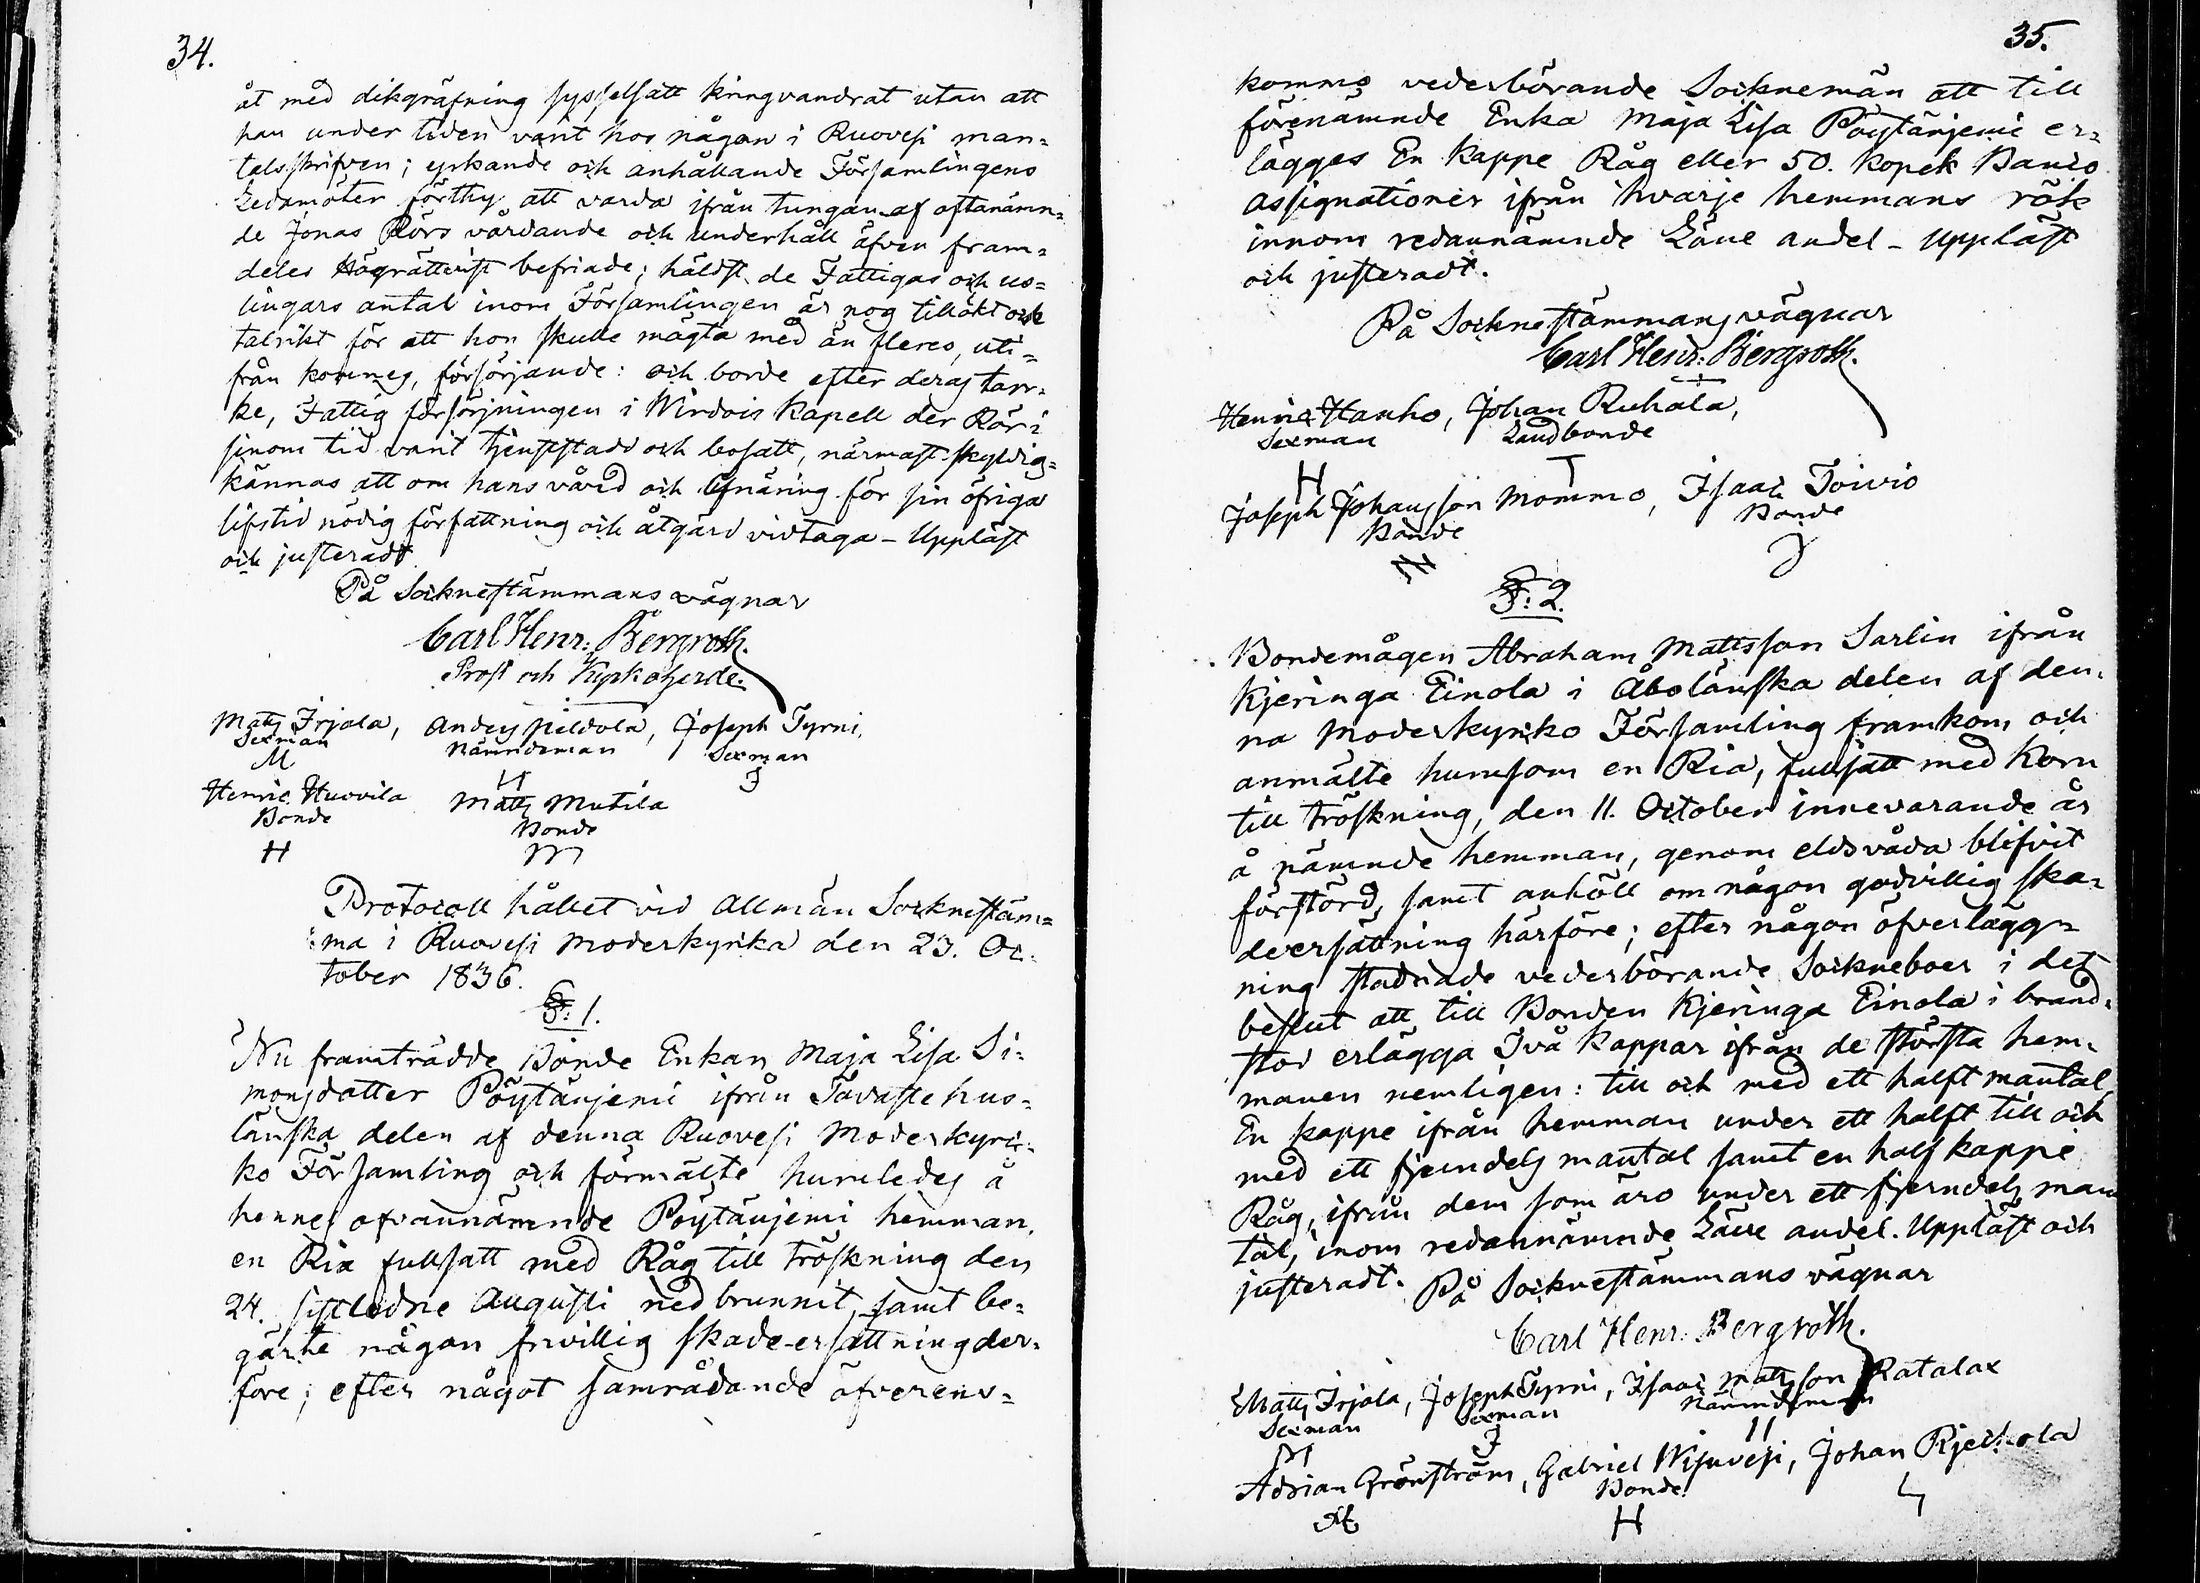 34.
åt med dikgräfning sysselsatt kringvandrat utan att
han under tiden varit hos någon i Ruovesi man-
talsskrifven; yrkande och anhållande Församlingens
Ledamöter förthy att varda ifrån tungan af oftanämn-
de Jonas Rörs vårdande och underhåll äfven fram-
deles Högrättvist befriade; häldst de Fattigas och us-
lingars antal inom Församlingen är nog tillökt och
talrikt för att hon skulle mägta med än fleres, uti-
från kommes, försörjande: och borde efter deras tan-
ke, Fattig försörjningen i Wirdois Kapell der Rör i
sinom tid varit tjenststadd och bosatt, närmast skyldig-
kännas att om hans vård och lifnäring för sin öfriga
lifstid nödig författning och åtgärd vidtaga - Uppläst
och justeradt
På Sockneståmmans vägnar
Carl Henr: Bergroth.
Prost och Kyrkoherde.
Matts Irjala, Anders Pieldola, Joseph Tyrni,
Sexman Nämndeman Sexman
M H J
Henric Huovila Matts Mutila
Bonde Bonde
H M
Protocoll hållet vid Allmän Socknestäm-
ma i Ruovesi Moderkyrka den 23. Oc-
tober 1836.
§: 1.
Nu framträdde Bonde Enkan Maja Lisa Si-
monsdotter Pöytäniemi ifrån Tavastehus-
länska delen af denna Ruovesi Moderkyr-
ko Församling och förmälte huruledes å
hennes ofvannämnde Pöytäniemi hemman,
en Ria fullsatt med Råg till tröskning den
24. sistledne Augusti nedbrunnit, samt be-
gärte någon frivillig skade-ersättning der-
före; efter något samrådande öfverens-
35.
komms vederbörande Socknemän att till
förenämnde Enka Maja Lisa Pöytäniemi er-
lägges En Kappe Råg eller 50. kopek Banco
Assignationer ifrån hvarje hemmans rök
innom redannämnde Läne andel - Uppläst
och justeradt.
På Socknestämmans vägnar
Carl Henr: Bergroth.
Henric Hanho, Johan Ruhala,
Sexman Landbonde
H T
Joseph Johansson Mommo, Isaac Toivio
Bonde Bonde
§: 2.
Bondemågen Abraham Mattsson Sarlin ifrån
Kjeringa Einola i Åbolänska delen af den-
na Moderkyrko Församling framkom och
anmälte hurusom en Ria, fullsatt med Korn
till tröskning, den 11. October innevarande år
å nämnde hemman, genom eldsvåda blifvit
förstörd, samt anhöll om någon godvillig ska-
deersättning härföre; efter någon öfverlägg-
ning stadnade vederbörande Sockneboer i det
beslut att till Bonden Kjeringa Einola i brand-
stod erlägga Två Kappar ifrån de största hem-
manen nemligen: till och med ett halft mantal
En kappe ifrån hemman under ett halft till och
med ett fjerndels mantal samt en half kappe
Råg, ifrån dem som äro under ett fjerndels man
tal, inom redannämnde Läne andel. Uppläst och
justeradt. På Socknestämmans vägnar
Carl Henr: Bergroth.
Matts Irjala, Joseph Tyrni, Isaac Mattsson Ratalax
Sexman Sexman Nämndeman
M J H
Adrian Grönström, Gabriel Wisuvesi, Johan
Bonde
H